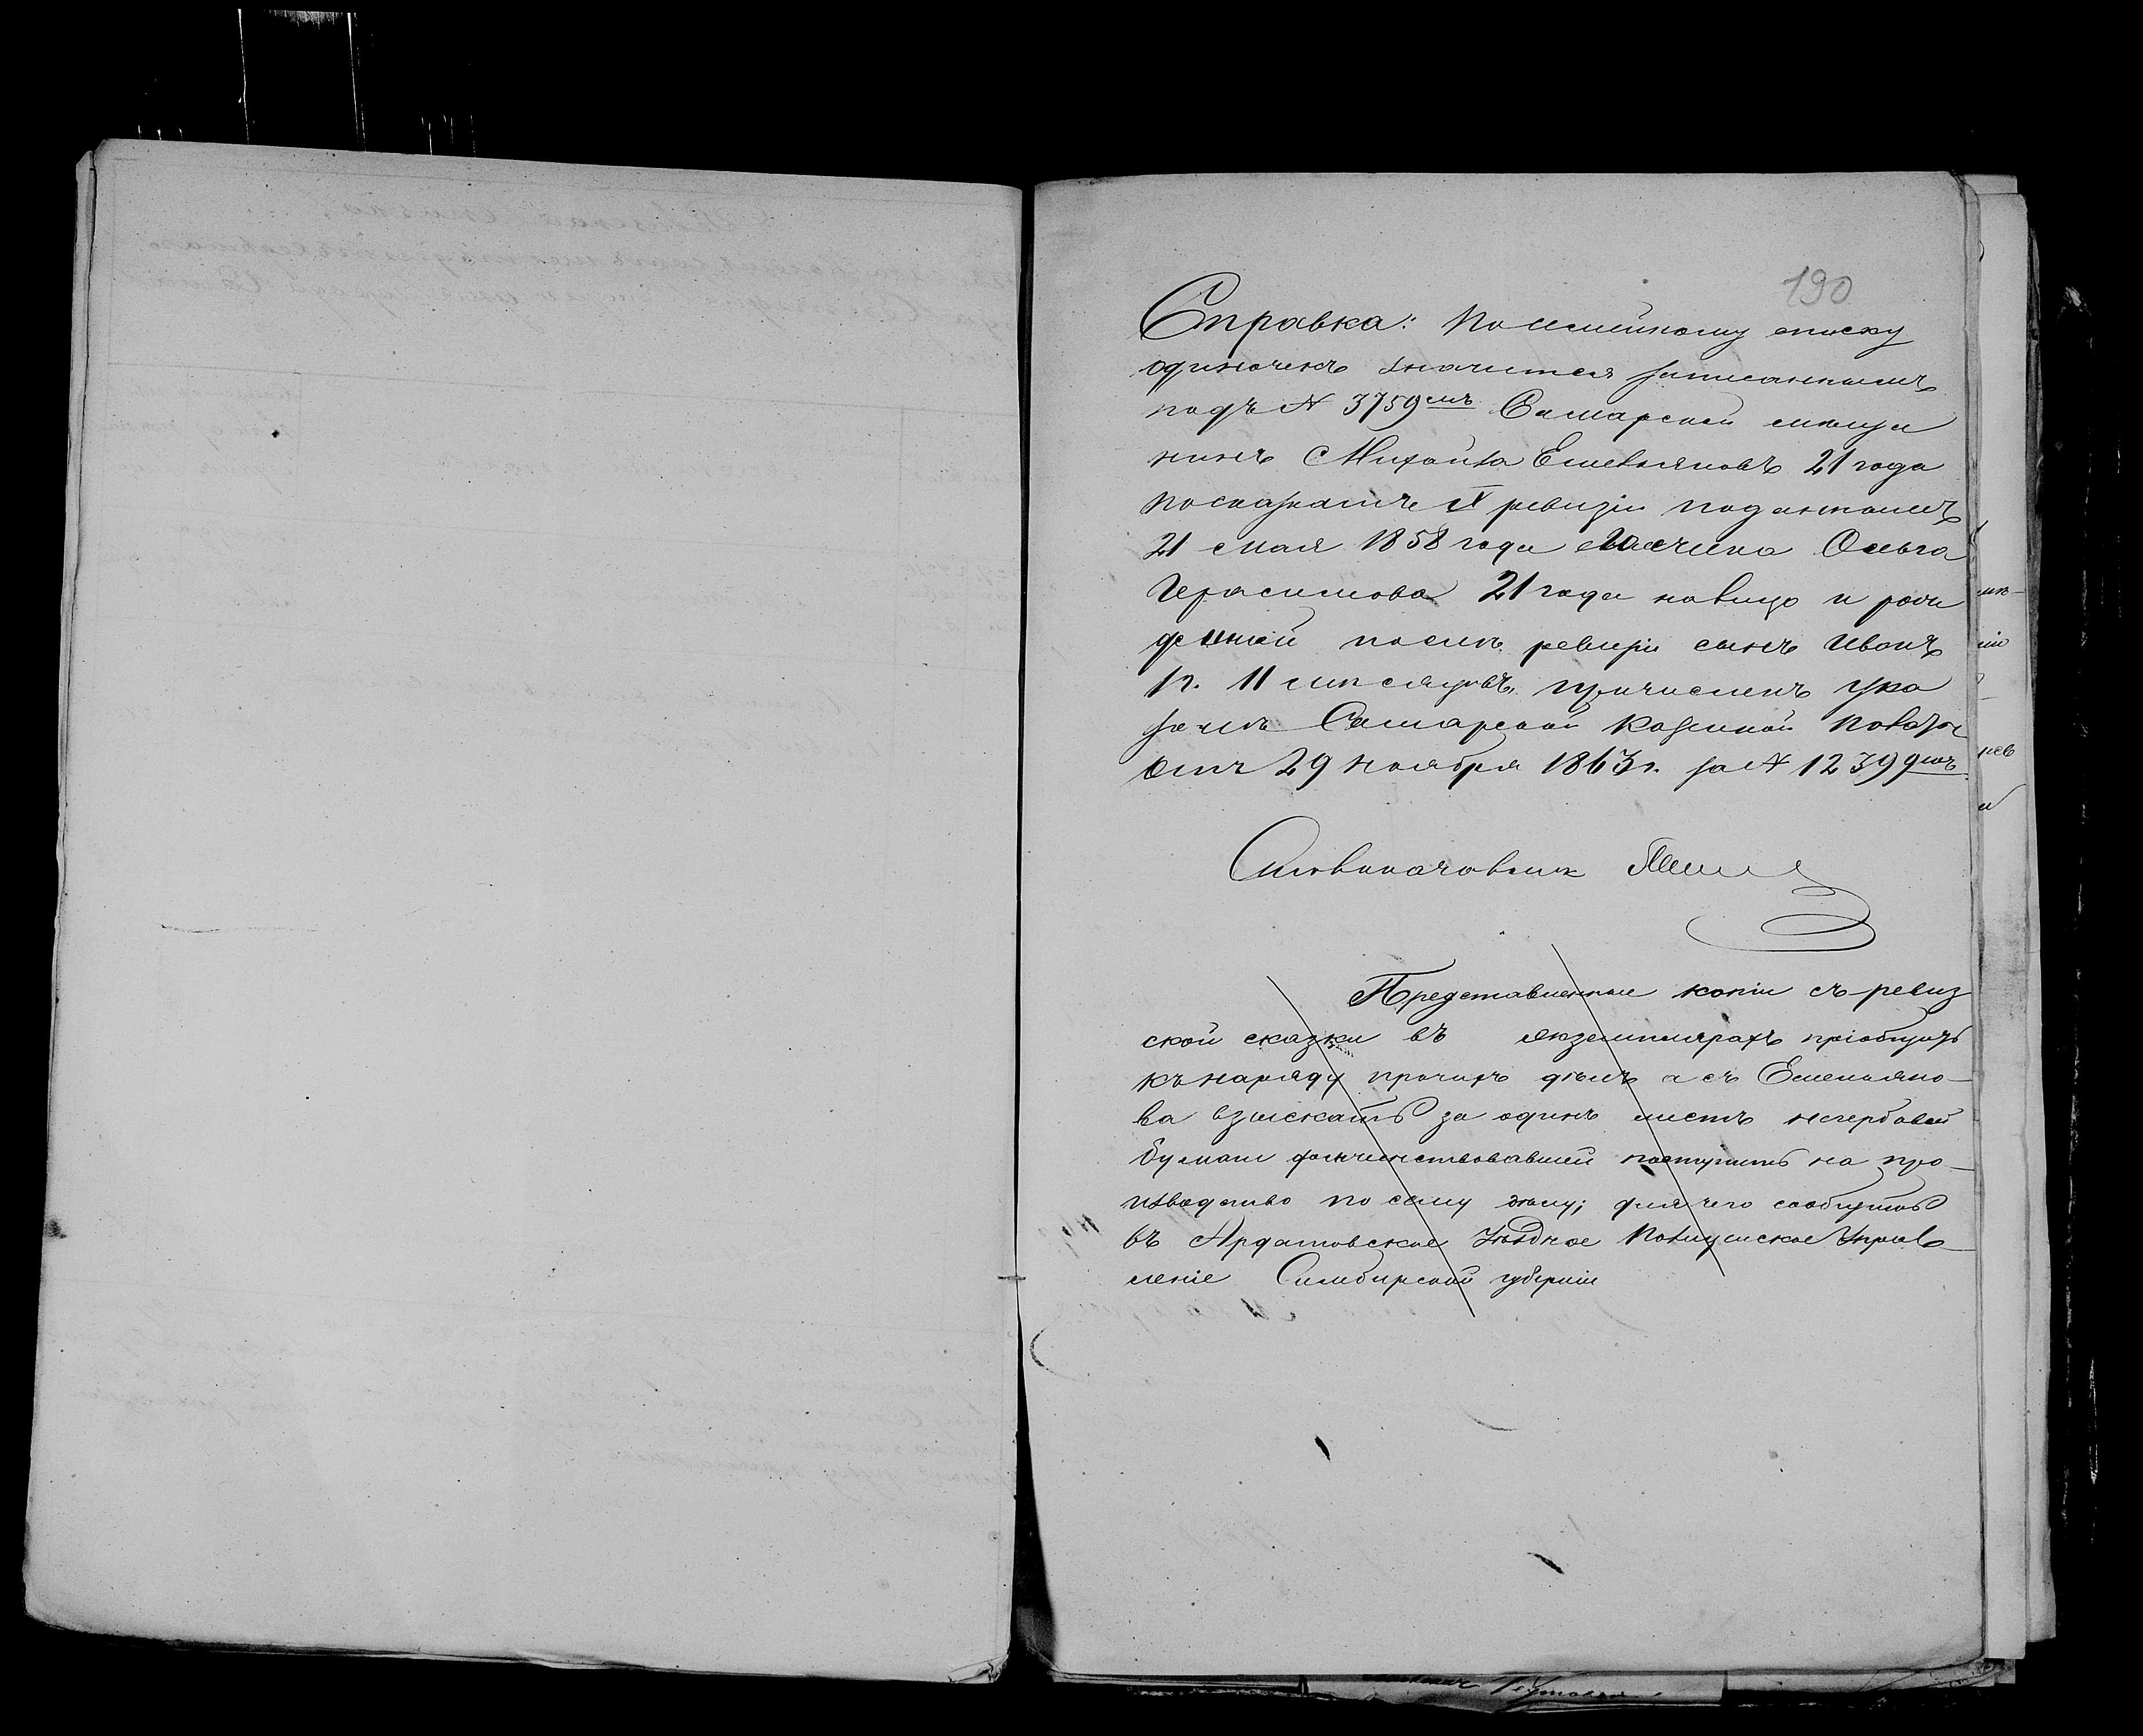 190
Справка: По семейному списку
одиночекъ значится записаннымъ
подъ № 3759мъ Самарской мѣща
нинъ Михайла Емельяновъ 21 года
По сказкамъ X ревизіи поданнымъ
21 мая 1858 года Ольга
Герасимова 21 года на лицо и рож
денный послѣ ревизіи сынъ Иванъ
1 г. 11 мѣсяцовъ, причисленъ ука
зомъ Самарской Казенной Палаты
отъ 29 Ноября 1863 г. за № 12399мъ
Столоначальник
Представленныя копіи съ ревиз
ской сказки въ экземплярахъ пріобщить
къ наряду прочихъ дѣлъ а съ Емельяно-
ва взыскать за одинъ листъ негербовой
бумаги долженствовавшей поступить на про-
изводство по сему дѣлу; для чего сообщить
въ Ардатовское Уѣздное Полицейское Управ-
леніе Симбирской губерніи